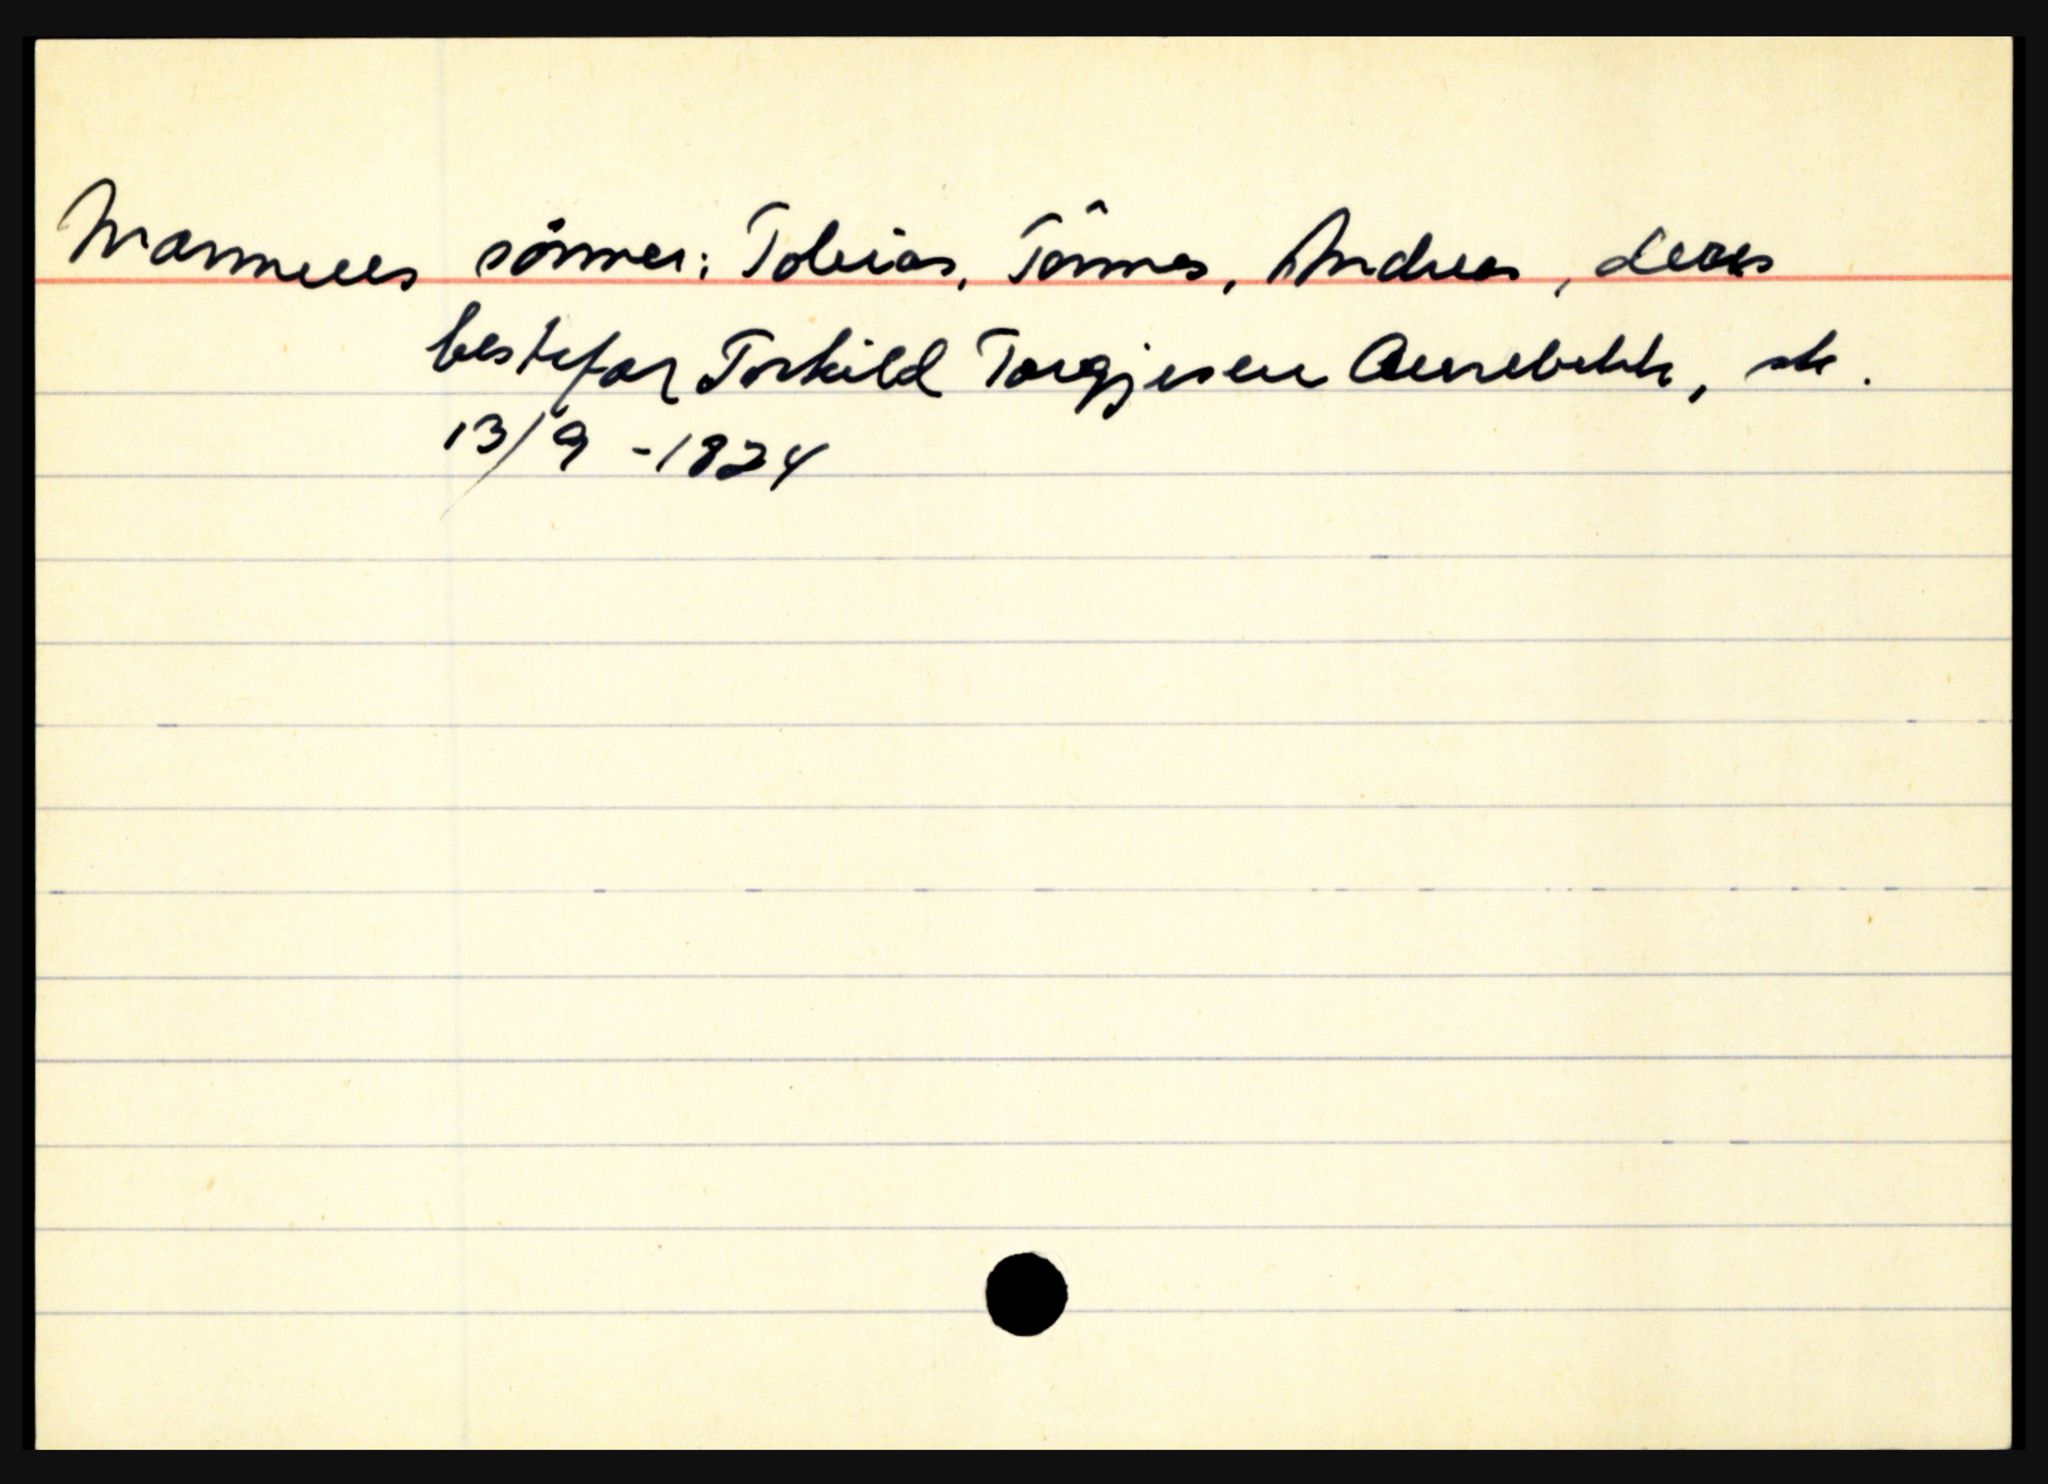 Mannens sönner: Tobias, Tönnes, Andreas, deres
bestefar Torkild Torgjesen Aurebekk, sk.
13/9 - 1824